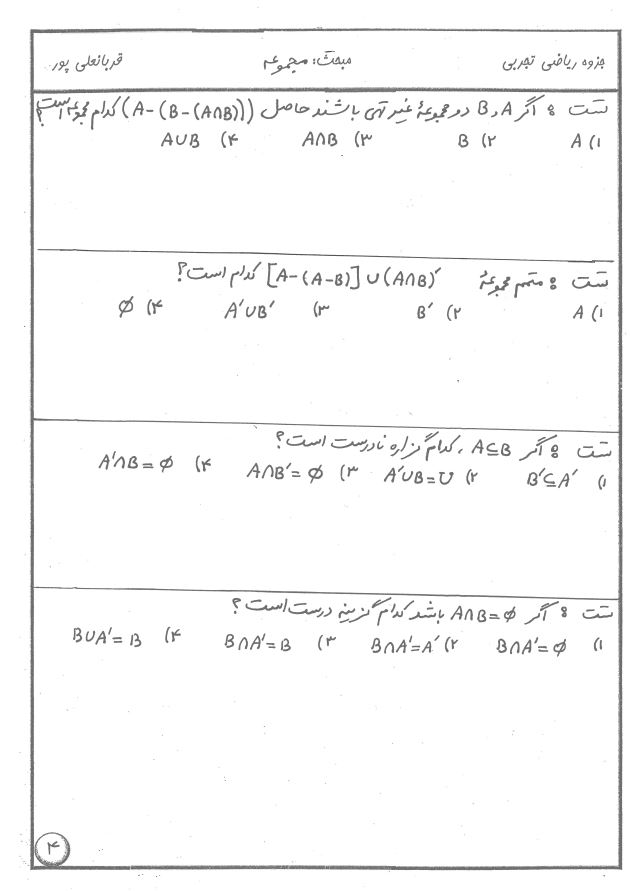 جزوه ریاضی تجربی مبحث: مجموعه قربانعلی پور
تست: اگر A و B دو مجموعهٔ غیر تهی باشند حاصل (A-(B-(A∩B))) کدام مجموعه است؟
۱) A ۲) B ۳) A∩B ۴) A∪B
تست: متمم مجموعهٔ [A-(A-B)]∪(A∩B)′ کدام است؟
۱) A ۲) B′ ۳) A′∪B′ ۴) ∅
تست: اگر A⊆B، کدام گزاره نادرست است؟
۱) B′⊆A′ ۲) A′∪B=U ۳) A∩B′=∅ ۴) A′∩B=∅
تست: اگر A∩B=∅ باشد کدام گزینه درست است؟
۱) B∩A′=∅ ۲) B∩A′=A′ ۳) B∩A′=B ۴) B∪A′=B
۴